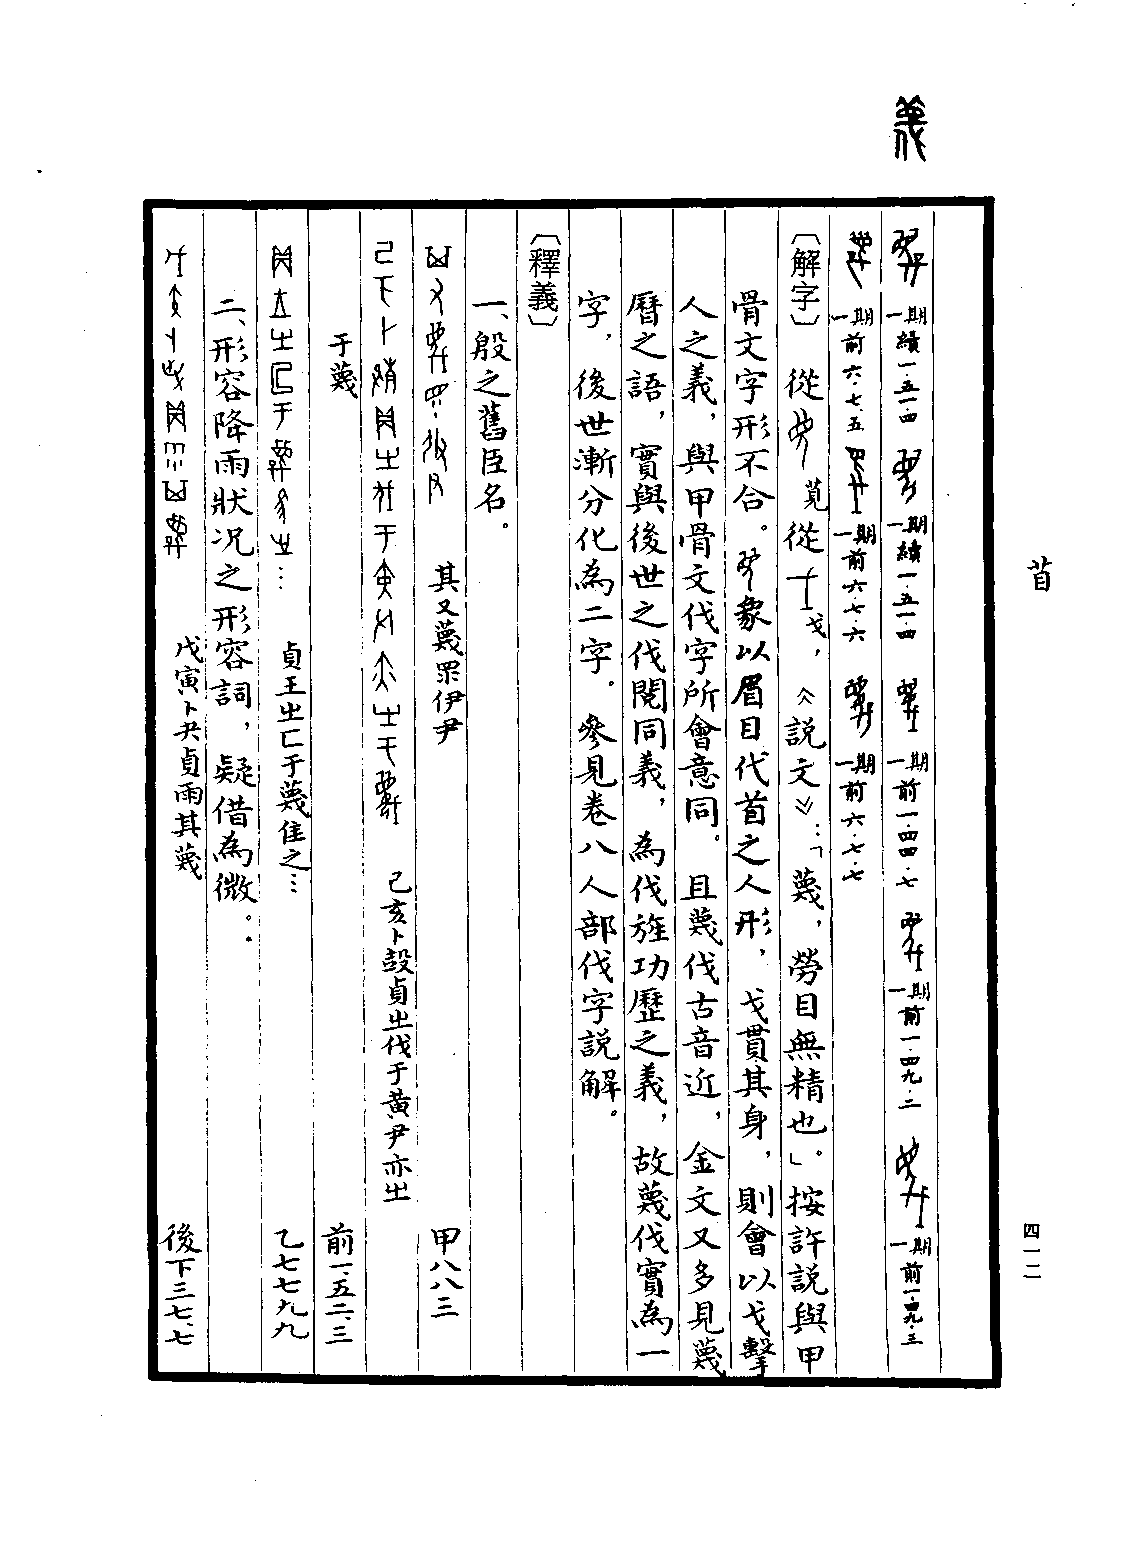 蔑
𦭝
四一二
一期續一·五一·四 一期續一·五一·四 一期前一·四四·七 一期前一·四九·二 一期前一·四九·三
一期前六·七·五 一期前六·七·六 一期前六·七·七
〔解字〕 從 莧 從 戈，《說文》：「蔑，勞目無精也。」按許說與甲
骨文字形不合。 象以眉目代首之人形，戈貫其身，則會以戈擊
人之義，與甲骨文伐字所會意同。且蔑伐古音近，金文又多見蔑
曆之語，實與後世之伐閱同義，為伐旌功歷之義，故蔑伐實為一
字，後世漸分化為二字。參見卷八人部伐字說解。
〔釋義〕
一、殷之舊臣名。
其又蔑眔伊尹 甲八八三
己亥卜㱿貞㞢伐于黃尹亦㞢
于蔑 前一、五二、三
貞王㞢匚于蔑隹之… 乙七七九九
二、形容降雨狀況之形容詞，疑借為微。
戊寅卜 貞雨其蔑 後下三七、七